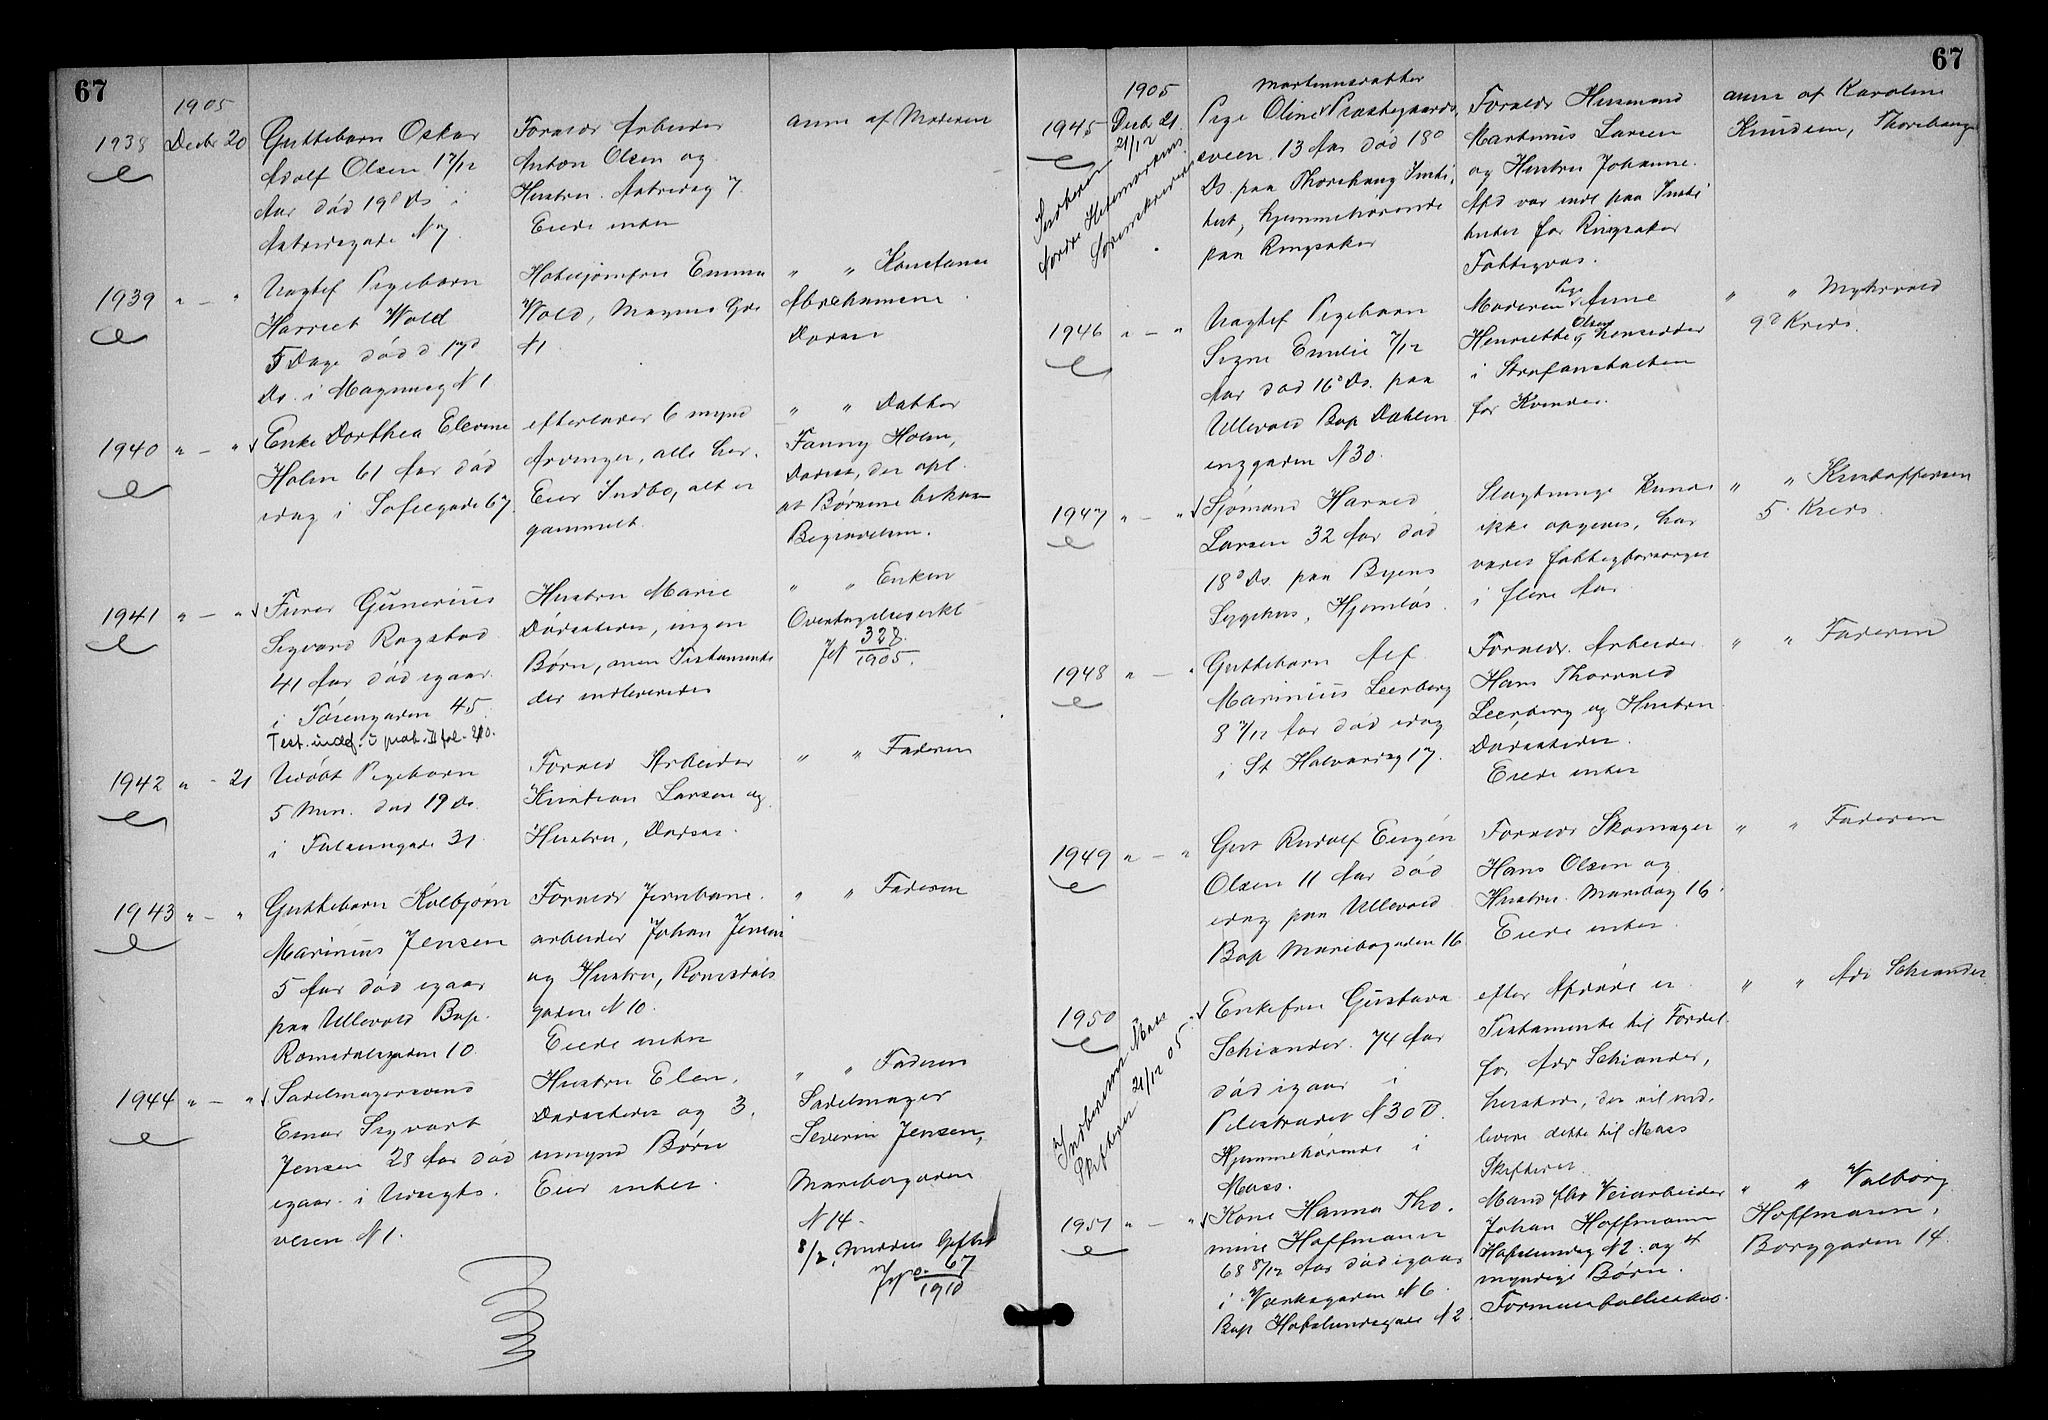 67
1905
1938 Decbr 20 Guttebarn Oskar
Adolf Olsen 17/12
Aar død 19d Ds i
Astridsgade N 7
Forældr Arbeider
Anton Olsen og
Hustru. Astridsg 7
Eiede intet
anm af Moderen
1939 " — " Uægtef Pigebarn
Harriet Wold
5 Dage død d 17d
Ds. i Magnusg N 1
Hoteljomfru Emma
Wold, Magnus Gde
N 1.
" " Konstanse
Abrahamsen
Dersts
1940 " — " Enke Dorthea Elevine
Holm 61 Aar død
idag i Sofiegade 67
efterlader 6 mynd
Arvinger, alle her.
Eier Indbo, alt er
gammelt.
" " Datter
Fanny Holm,
Dersts, der opl.
at Børnene bekos
Begravelsen.
1941 " — " Furer Gunerius
Sigvard Rogstad
41 Aar død igaar
i Tøiengaden 45.
Test. indf. i prot. II fol. 210.
Hustru Marie
Dersteder, ingen
Børn, men Testamente
der indleveredes
" " Enken
Overtagelseserkl
Jnf 328/1905.
1942 " - 21 Udøbt Pigebarn
5 Min. død 19 Ds.
i Falsensgade 31
Forældr Arbeider
Kristian Larsen og
Hustru, Dersts.
" " Faderen
1943 " — " Guttebarn Kolbjørn
Marinius Jensen
5 Aar død igaar
paa Ullevold Bop.
Romsdalsgaden 10
Forældr Jernbane-
arbeider Johan Jensen
og Hustru, Romsdals
gaden N 10.
Eiede intet
" " Faderen
1944 " — " Sadelmagersvend
Einar Sigvart
Jensen 28 Aar død
igaar i Udsigts-
veien N 1.
Hustru Elen,
Dersteder og 3
umynd Børn
Eier intet.
" " Faderen
Sadelmager
Severin Jensen,
Maribogaden
N 14.
67/1910
67
1905
1945 Decbr 21 Pige Oline Martinusdatter Præstegaards-
sveen 13 Aar død 18d
Ds. paa Thorshaug Insti-
tut, hjemmehørende
paa Ringsaker
Forældr Husmand
Martinus Larsen
og Hustru Johanne.
Afd var inds paa Insti
tutet for Ringsaker
Fattigvæs.
anm af Karoline
Knudsen, Thorshaug
21/12
Nordre Hedemarkens
Sorenskriveri
1946 " — " Uægtef Pigebarn
Signe Emilie 7/12
Aar død 16d Ds. paa
Ullevold Bop Dahlen
enggaden N 30.
Moderen Pige Anne
Henriette Olsen, hensidder
i Strafanstalten
for Kvinder.
" " Myhrvold
9d Kreds.
1947 " — " Sjømand Harald
Larsen 32 Aar død
18d Ds. paa Byens
Sygehus, Hjemløs.
Slægtninge kunde
ikke opgives, har
været fattigforsørget
i flere Aar
" " Kristoffersen
5. Kreds.
1948 " — " Guttebarn Alf
Marinius Leerberg
8 7/12 Aar død idag
i St Halvardsg 17.
Forældr. Arbeider
Hans Thorvald
Leerberg og Hustru
Dersteder.
Eiede intet
" " Faderen
1949 " — " Gut Rudolf Eugén
Olsen 11 Aar død
idag paa Ullevold
Bop Maribogaden 16
Forældr Skomager
Hans Olsen og
Hustru Maribog 16.
Eiede intet.
" " Faderen
1950 Enkefru Gustava
Schiander 74 Aar
død igaar i
Pilestrædet N 30 D.
Hjemmehørende i
Moss.
Indberettet Moss
Skifteret 21/12 05
efter Afdøde er
Testamente til Fordel
for Adv Schiander,
hersteds, der vil ind-
levere dette til Moss
Skifteret.
" " Adv Schiander
1951 " — " Kone Hanna Tho-
mine Hoffmann
68 8/12 Aar død igaar
i Værksgaden N 6
Bop Hafslundsgade N 2
Mand fhv Veiarbeider
Johan Hoffmann
Hafslundsg N 2 og 4
myndige Børn.
Formuesfællesskab.
" " Valborg
Hoffmann,
Borggaden 14.